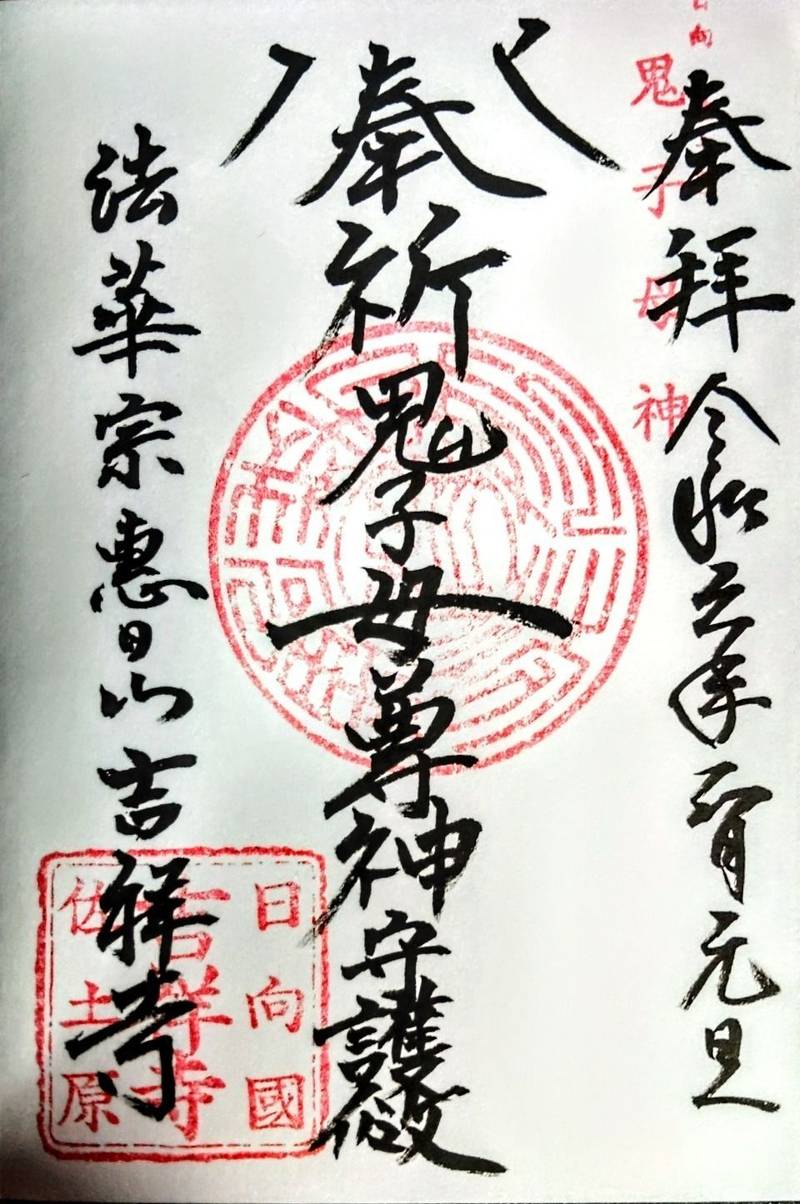 日向
鬼子母神
奉拝 令和三年正月元旦
奉祈鬼子母尊神守護攸
法華宗惠日山吉祥寺
日向國
吉祥寺
佐土原